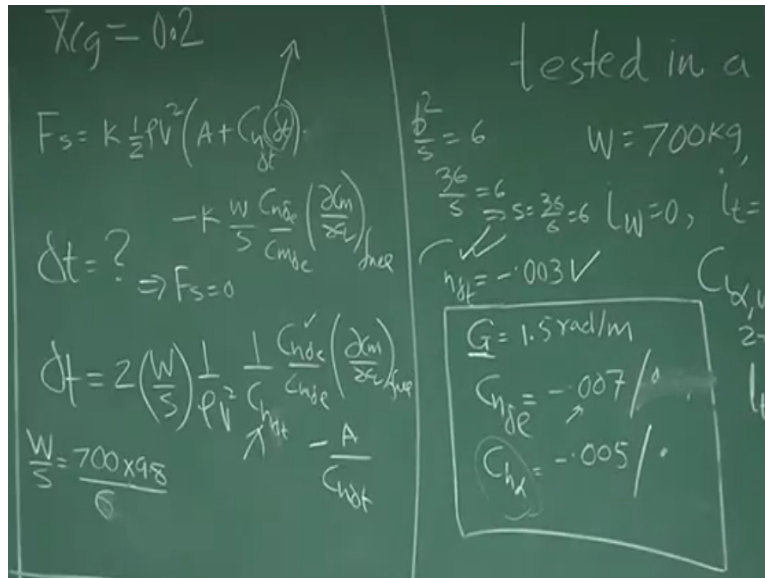 X̄cg = 0.2
Fs = K ½ ρV² (A + C_hδt δt)
- K W/S C_hδe/C_mδe (∂Cm/∂CL)free
δt = ?
⇒ Fs = 0
δt = 2 (W/S) 1/ρV² 1/C_hδt C_hδe/C_mδe (∂Cm/∂CL)free
- A/C_hδt
W/S = 700×9.8/6
tested in a
b²/S = 6
W = 700kg,
36/S = 6
⇒ S = 36/6 = 6
i_w = 0, i_t =
h_δt = -.003 ✓
G = 1.5 rad/m
C_hδe = -.007/°
C_hα = -.005/°